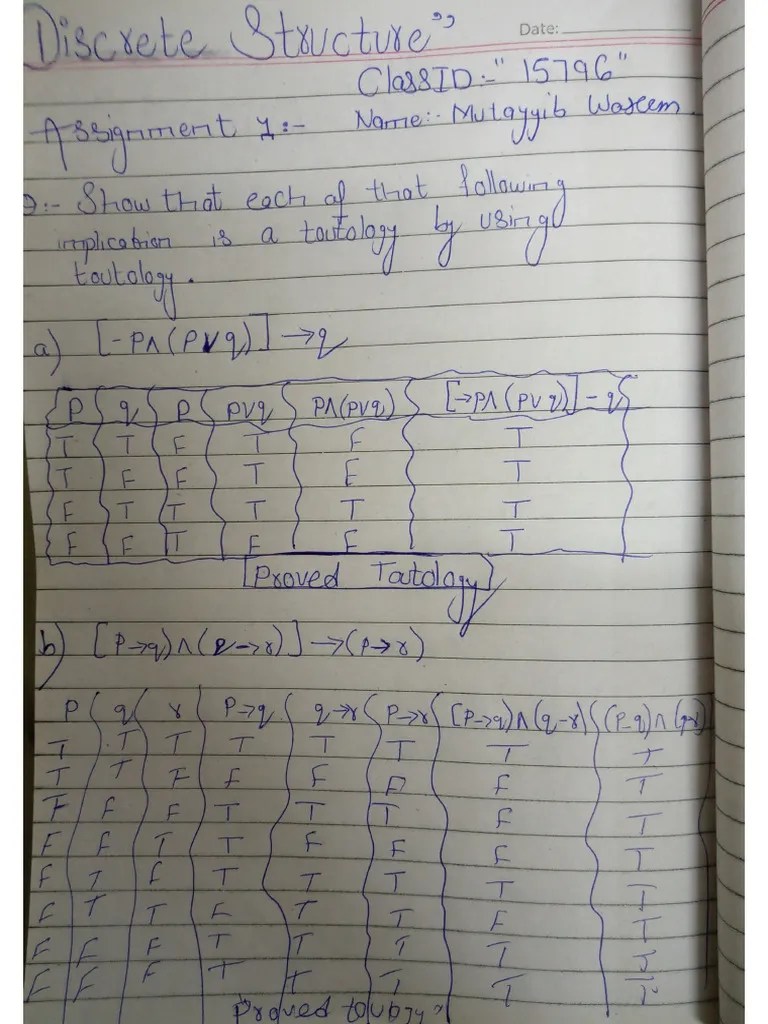 Discrete Structure”
Date:
ClassID:- "15796"
Assignment 1:- Name:- Mutayyib Waseem
:- Show that each of that following
implication is a toutology by using
toutology.
a) [-P∧(P∨q)]→q
P q P P∨q P∧(P∨q) [→P∧(P∨q)]-q
T T F T F T
T F F T F T
F T T T T T
F F T F F T
Proved Toutology
b) [P→q)∧(q→r)]→(P→r)
P q r P→q q→r P→r [P→q)∧(q-r) (P-q)∧
T T T T T T T T
T T F F F F F T
F F F T T T F T
F F T T F F F T
F T F T T T T T
F T T F T T F T
F F F T T T T T
F F F T T T T T
Proved